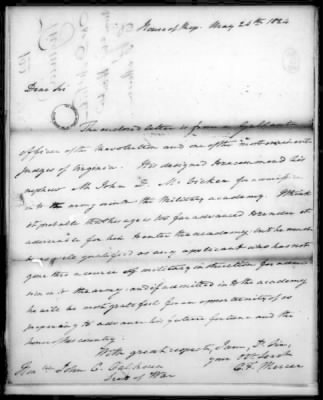 House of Rep. May 24th, 1824
Dear Sir
The enclosed letter is from a gallant
officer of the revolution and one of the most eminent
judges of Virginia. It is designed to recommend his
nephew Mr. John D. McVicker for admission
into the army or to the Military academy. I think
it probable that his age is too far advanced to render it
adviseable for him to enter the academy, but he must
be as well qualified as any applicant who has not
gone thro' a course of military instruction for admis
sion into the army: and if admitted into the academy
he will be most grateful for an opportunity of so
preparing to advance his future fortune and the
honor of his country.
With great respect, I am, Dr. Sir,
your obt. servt.
C. F. Mercer
Hon. John C. Calhoun
Sect. of War